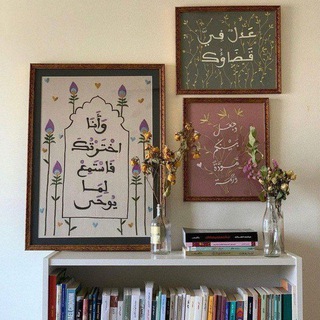 وَأَنَا
اخْتَرْتُكَ
فَاسْتَمِعْ
لِمَا
يُوحَى
عَدْلٌ فِيَّ
قَضَاؤُكَ
وجعل
بينكم
مودة
ورحمة